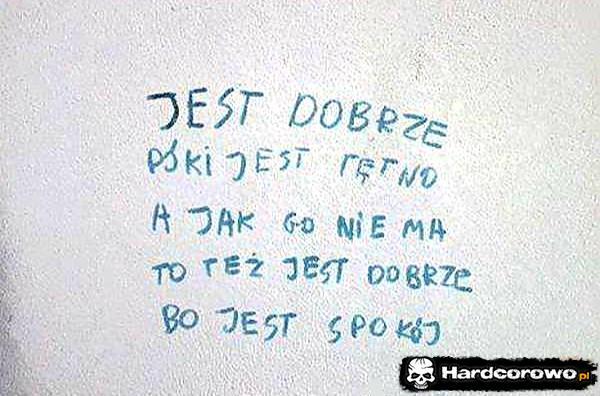 JEST DOBRZE
PÓKI JEST TĘTNO
A JAK GO NIE MA
TO TEŻ JEST DOBRZE
BO JEST SPOKÓJ
Hardcorowo.pl